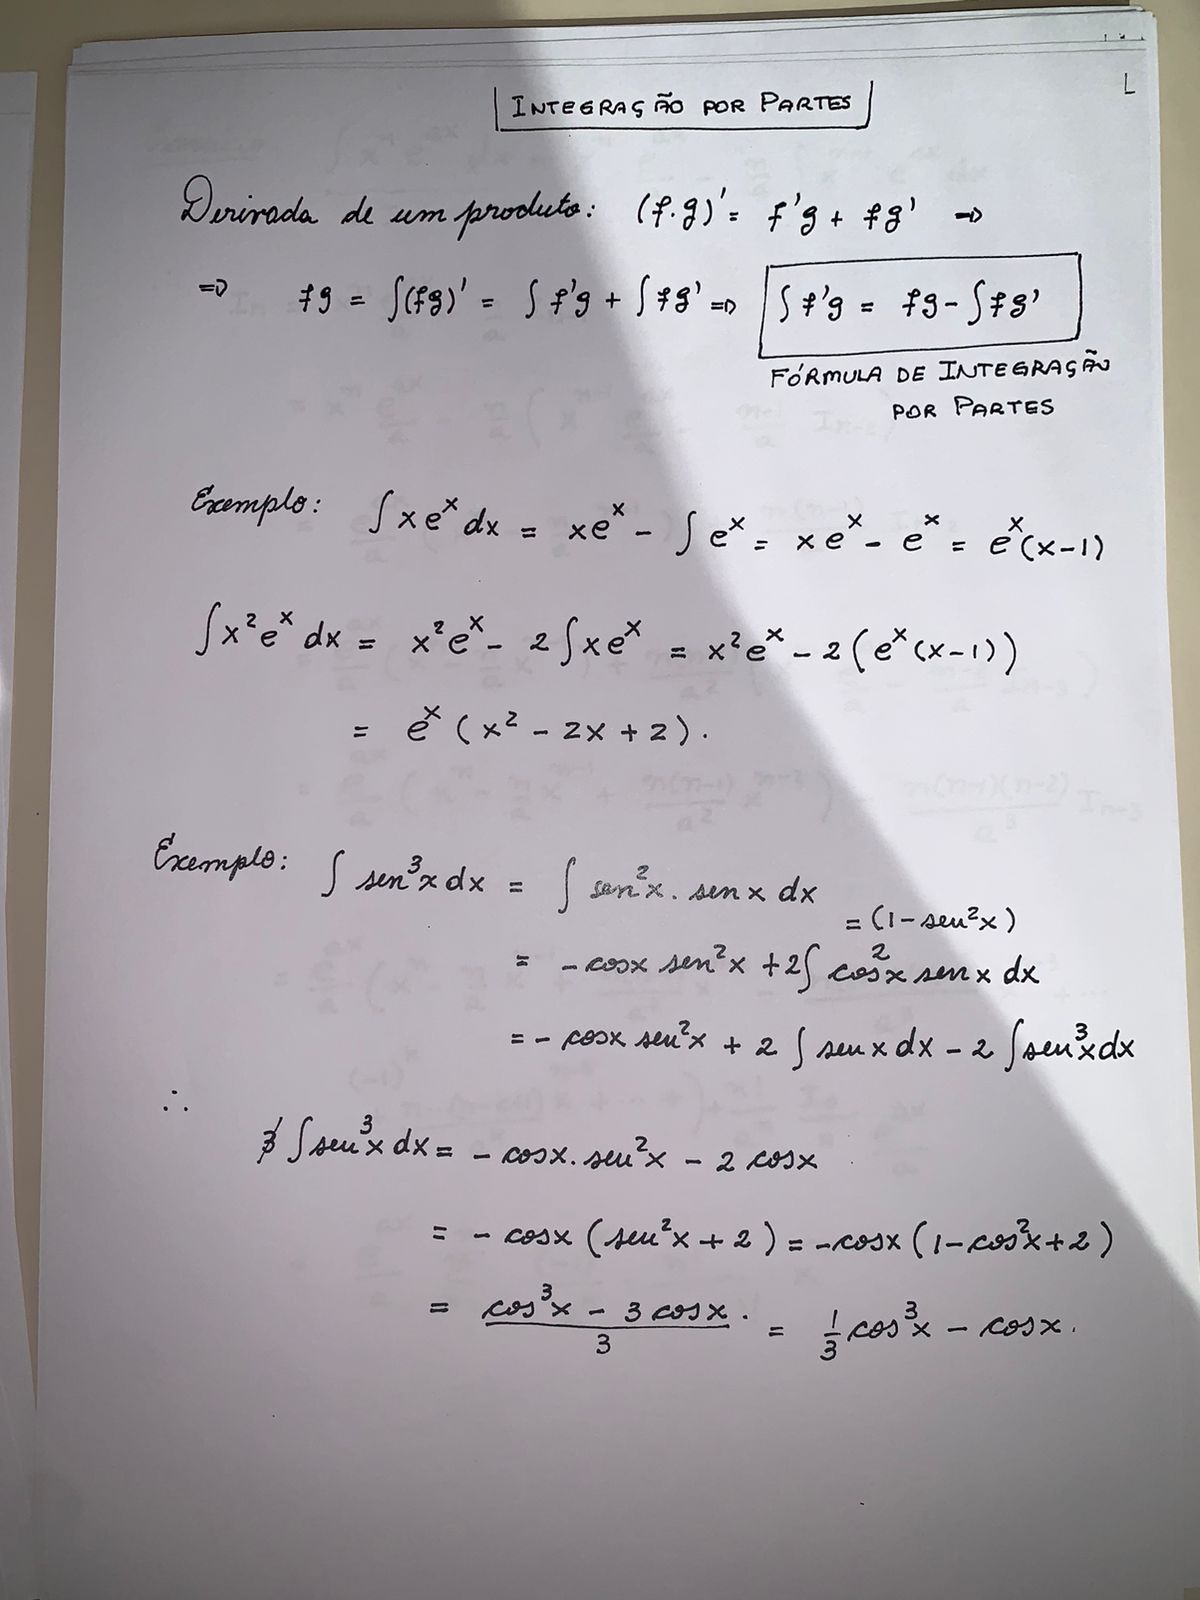 INTEGRAÇÃO POR PARTES
Derivada de um produto: (f.g)' = f'g + fg' ⇒
⇒ fg = ∫(fg)' = ∫f'g + ∫fg' ⇒ ∫f'g = fg - ∫fg'
FÓRMULA DE INTEGRAÇÃO
POR PARTES
Exemplo: ∫xeˣdx = xeˣ - ∫eˣ = xeˣ - eˣ = eˣ(x-1)
∫x²eˣdx = x²eˣ - 2∫xeˣ = x²eˣ - 2(eˣ(x-1))
= eˣ(x² - 2x + 2).
Exemplo: ∫sen³x dx = ∫sen²x . sen x dx
= (1 - sen²x)
= - cosx sen²x + 2∫cos²x sen x dx
= - cosx sen²x + 2∫sen x dx - 2∫sen³x dx
∴
3∫sen³x dx = - cosx . sen²x - 2 cosx
= - cosx (sen²x + 2) = - cosx (1 - cos²x + 2)
= (cos³x - 3 cosx)/3 . = 1/3 cos³x - cosx.